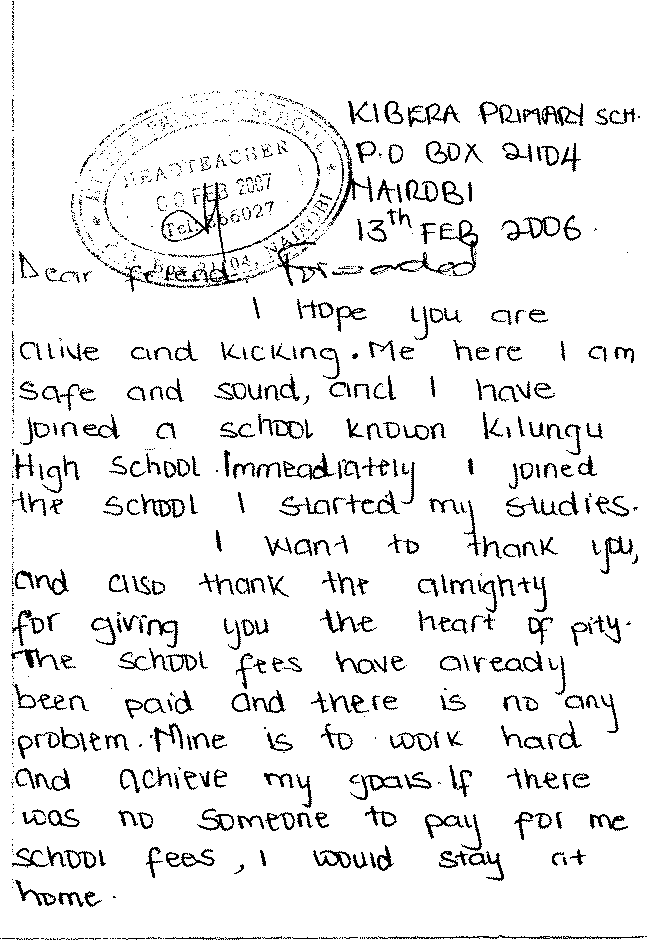 KIBERA PRIMARY SCH.
P.O BOX 21104
NAIROBI
13th FEB 2006.
HEADTEACHER
FEB 2007
Tel: 566027
NAIROBI
Dear friend,
I Hope you are
alive and kicking. Me here I am
safe and sound, and I have
joined a school known Kilungu
High School. Immeadiately I joined
the school I started my studies.
I want to thank you,
and also thank the almighty
for giving you the heart of pity.
The school fees have already
been paid and there is no any
problem. Mine is to work hard
and achieve my goals. If there
was no someone to pay for me
school fees, I would stay at
home.